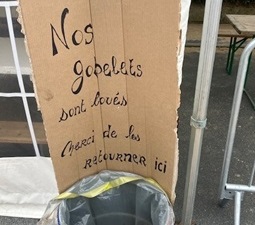 Nos
gobelets
sont loués
Cherci de les
retourner ici